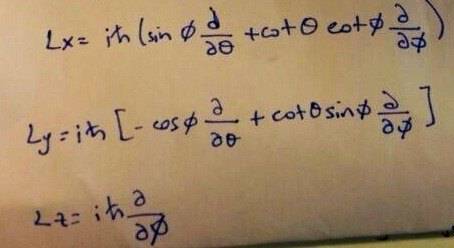 Lx = iħ (sin φ ∂/∂θ + cot θ cot φ ∂/∂φ)
Ly = iħ [- cos φ ∂/∂θ + cot θ sin φ ∂/∂φ]
Lz = iħ ∂/∂φ